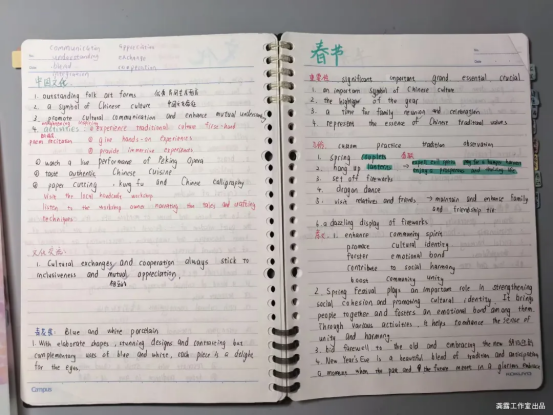 communication appreciation
understanding exchange
blend cooperation
integration
中国文化
1. outstanding folk art forms
2. a symbol of Chinese culture
3. promote cultural communication and enhance mutual understanding
4. activities ① experience traditional culture first-hand
② give hands-on experiences
③ provide immersive experiences
① watch a live performance of Peking Opera
② taste authentic Chinese cuisine
③ paper cutting, kung fu and Chinese calligraphy
visit the local handicraft workshop
listen to the workshop owner recounting the tales and crafting
techniques
文化交流:
1. Cultural exchanges and cooperation always stick to
inclusiveness and mutual appreciation.
青花瓷: Blue and white porcelain
1. With elaborate shapes, stunning designs and contrasting but
complementary uses of blue and white, each piece is a delight
for the eyes.
Campus
春节
重要性 significant important grand essential crucial
1. an important symbol of Chinese culture
2. the highlight of the year
3. a time for family reunion and celebration
4. represent the essence of Chinese traditional values
习俗 custom practice tradition observation
1. spring couplets 春联
2. hang up lanterns
3. set off fireworks
4. dragon dance
5. visit relatives and friends → maintain and enhance family
and friendship tie
6 a dazzling display of fireworks
意义 1. enhance community spirit
promote cultural identity
forster emotional bond
contribute to social harmony
boost community unity
2. Spring Festival plays an important role in strengthening
social cohesion and promoting cultural identity. It brings
people together and fosters an emotional bond among them.
Through various activities, it helps to enhance the sense of
unity and harmony.
3. bid farewell to the old and embracing the new
4. New Year's Eve is a beautiful blend of tradition and
a moment when the past and the future meet in a glorious embrace
龚露工作室出品